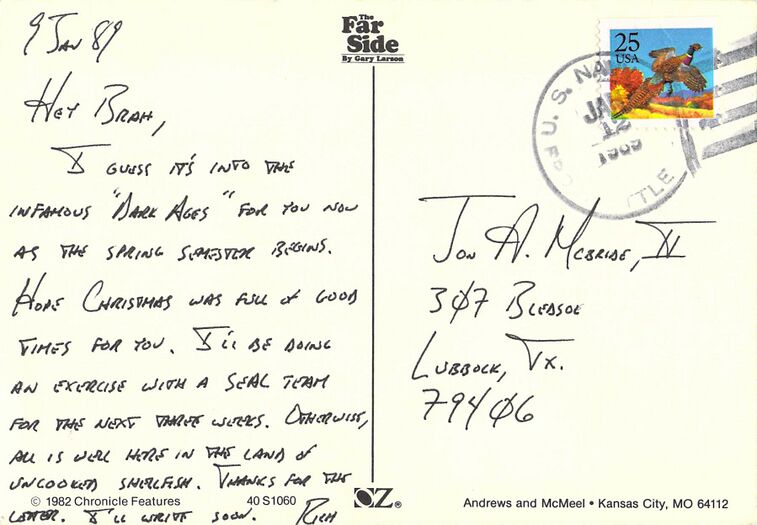 9 Jan 89
Hey Brah,
I guess it's into the
infamous "Dark Ages" for you now
as the spring semester begins.
Hope Christmas was full of good
times for you. I'll be doing
an exercise with a SEAL Team
for the next three weeks. Otherwise,
all is well here in the land of
uncooked shellfish. Thanks for the
letter. I'll write soon. Rich
© 1982 Chronicle Features 40 S1060
The
Far
Side
By Gary Larson
OZ®
25
USA
U.S. NA
JAN
12
1989
TTLE
Jon A. McBride, II
307 Bledsoe
Lubbock, Tx.
79406
Andrews and McMeel • Kansas City, MO 64112